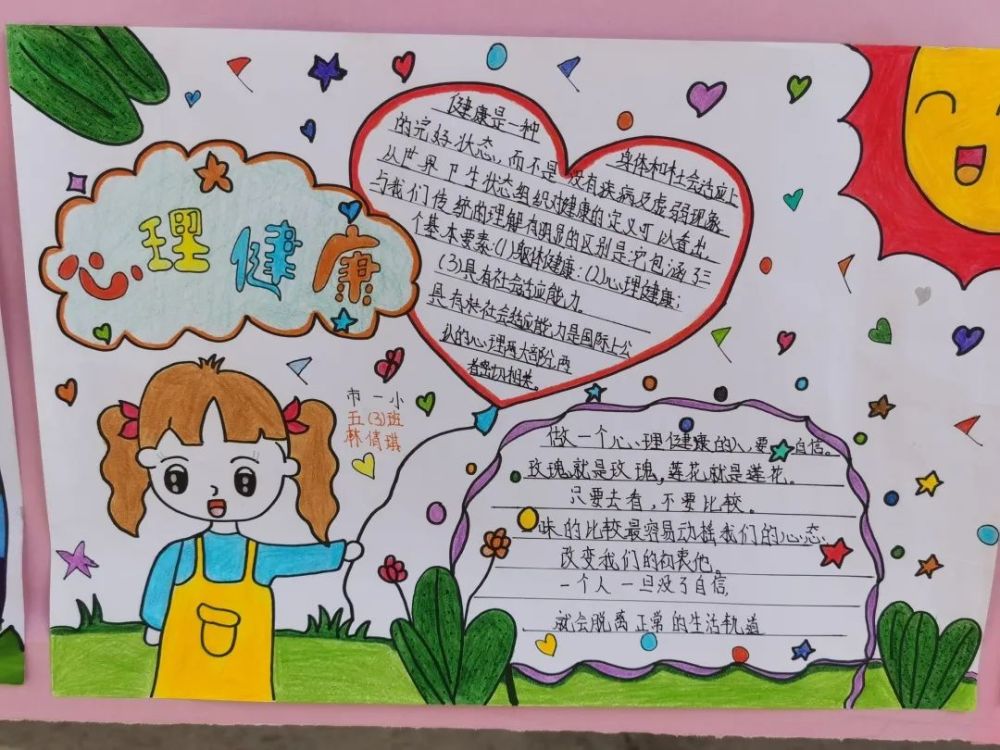 心理健康
健康是一种
的完好状态,而不是没有疾病及虚弱现象
身体和社会适应上
从世界卫生状态组织对健康的定义可以看出,
与我们传统的理解有明显的区别是:它包涵了三
个基本要素:(1)躯体健康:(2)心理健康:
(3)具有社会适应能力。
具有社会适应能力是国际上公
认的心理两大部分,两
者密切相关。
市一小
五(3)班
林倩琪
做一个心理健康的人,要自信。
玫瑰就是玫瑰,莲花就是莲花。
只要去看,不要比较。
一味的比较最容易动摇我们的心态
改变我们的初衷他。
一个人一旦没了自信,
就会脱离正常的生活轨道